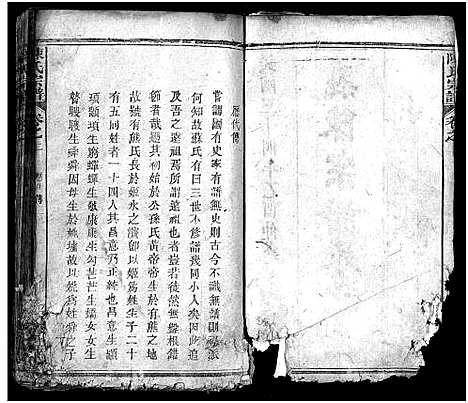 陳氏宗譜
歷代傳
嘗謂國有史家有譜無史則古今不識無譜則宗
何知故蘇氏有曰三世不修譜幾同小人矣因此追
及吾之遠祖也者豈若徒然無盤根錯
節者哉遡其初始於公孫氏黃帝帝生於有熊之地
故號有熊氏長於姬水之濱卽以姬爲姓生子二十
有五同姓者一十四人其昌意乃正統也昌意生顓
頊顓項生窮蟬蟬生敬康康生勾芒芒生蟜女女生
瞽瞍瞍生舜舜因母生於姚墟故以姚爲姓舜之子
陳氏宗譜